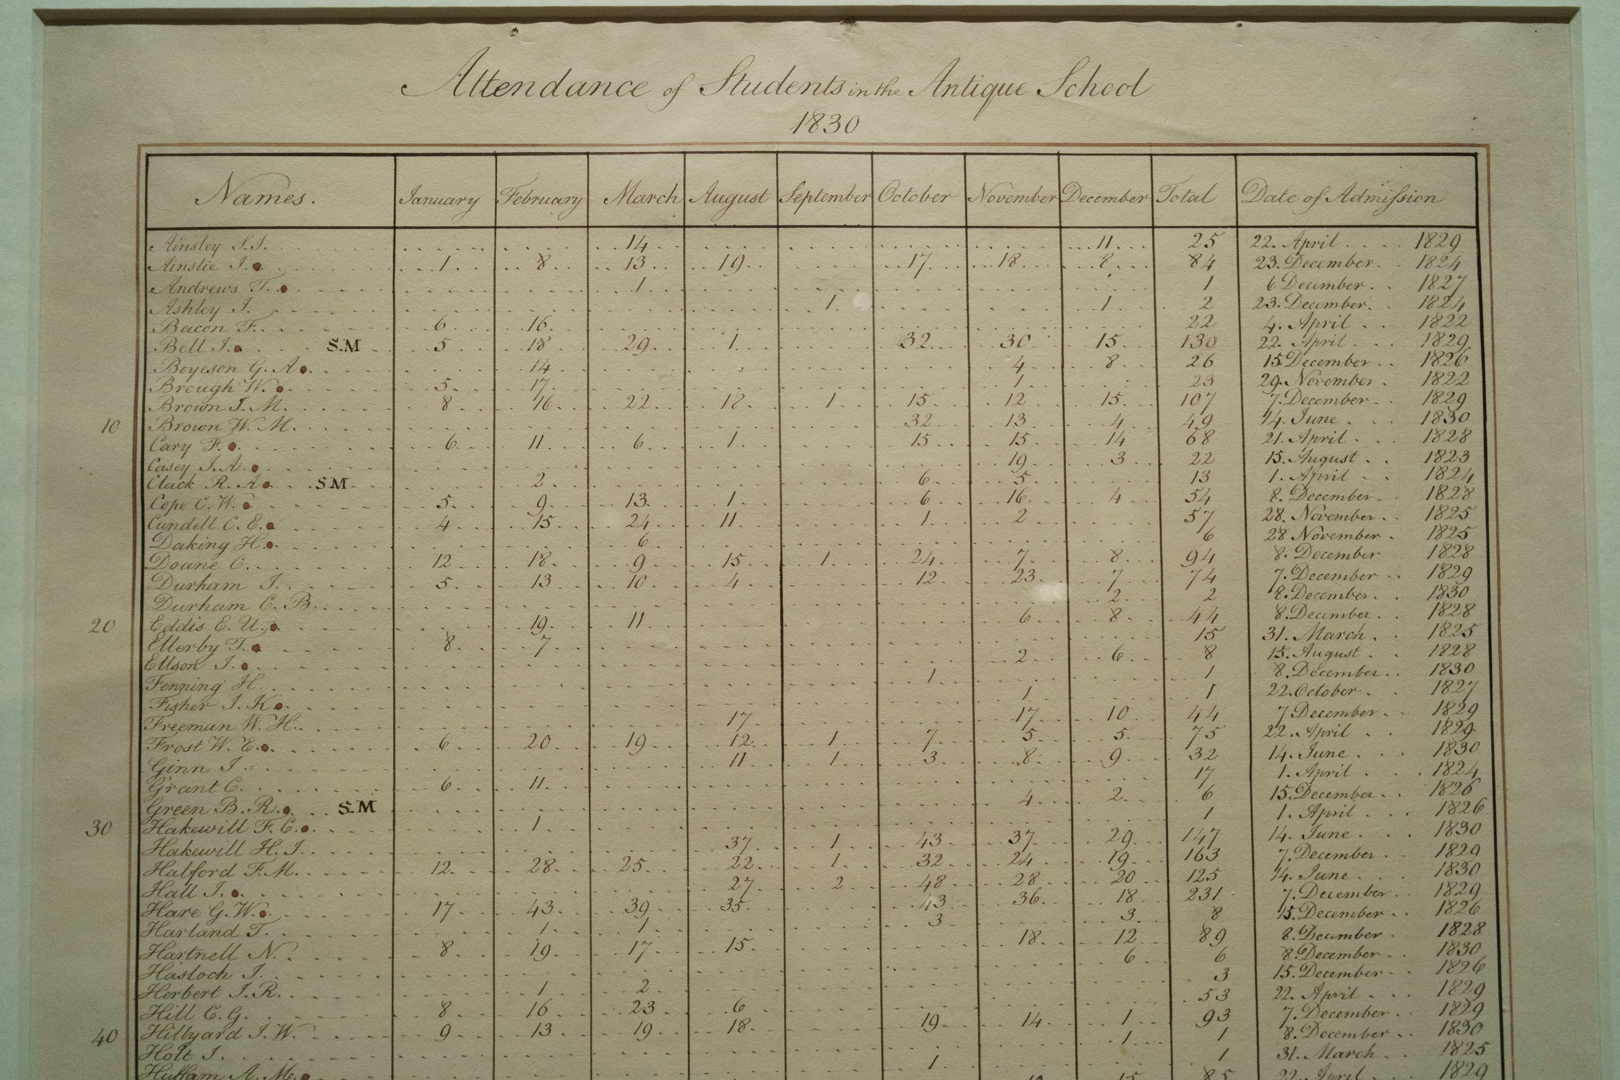 Attendance of Students in the Antique School
1830
Names. January February March August September October November December Total Date of Admission
Ainsley S.J. 14 11 25 22. April 1829
Ainslie J. 1 8 13 19 17 18 8 84 23. December 1824
Andrews T. 1 1 6 December 1827
Ashley J. 1 1 2 23. December 1824
Bacon F. 6 16 22 4. April 1822
Bell J. S.M 5 18 29 1 32 30 15 130 22. April 1829
Boyeson G. A. 14 4 8 26 15 December 1826
Brough W. 5 17 1 23 29. November 1822
Brown J. M. 8 16 22 18 1 15 12 15 107 7. December 1829
10 Brown W. M. 32 13 4 49 14. June 1830
Cary F. 6 11 6 1 15 15 14 68 21. April 1828
Casey J. A. 19 3 22 15. August 1823
Clack R. A. S.M 2 6 5 13 1. April 1824
Cope C. W. 5 9 13 1 6 16 4 54 8. December 1828
Cundell C. E. 4 15 24 11 1 2 57 28. November 1825
Daking H. 6 6 28 November 1825
Doane C. 12 18 9 15 1 24 7 8 94 8. December 1828
Durham J. 5 13 10 4 12 23 7 74 7. December 1829
Durham C. B. 2 2 8. December 1830
20 Eddis E. U. 19 11 6 8 44 8. December 1828
Ellerby T. 8 7 15 31. March 1825
Ellson J. 2 6 8 15. August 1828
Fenning H. 1 1 8. December 1830
Fisher J. K. 1 1 22. October 1827
Freeman W. H. 17 17 10 44 7 December 1829
Frost W. E. 6 20 19 12 1 7 5 5 75 22. April 1829
Ginn J. 11 1 3 8 9 32 14. June 1830
Grant C. 6 11 17 1. April 1824
Green B. R. S.M 4 2 6 15. December 1826
30 Hakewill F. C. 1 1 1. April 1826
Hakewill H. J. 37 1 43 37 29 147 14. June 1830
Halford F. M. 12 28 25 22 1 32 24 19 163 7. December 1829
Hall J. 27 2 48 28 20 125 14. June 1830
Hare G. W. 17 43 39 35 43 36 18 231 7. December 1829
Harland T. 1 1 3 3 8 15. December 1826
Hartnell N. 8 19 17 15 18 12 89 8. December 1828
Hasloch J. 6 6 8 December 1830
Herbert J. R. 1 2 3 15. December 1826
Hill C. G. 8 16 23 6 53 22. April 1829
40 Hilbyard J. W. 9 13 19 18 19 14 1 93 7. December 1829
Holt J. 1 1 8. December 1830
Hullam A. M. 1 1 31. March 1825
15 85 22. April 1829